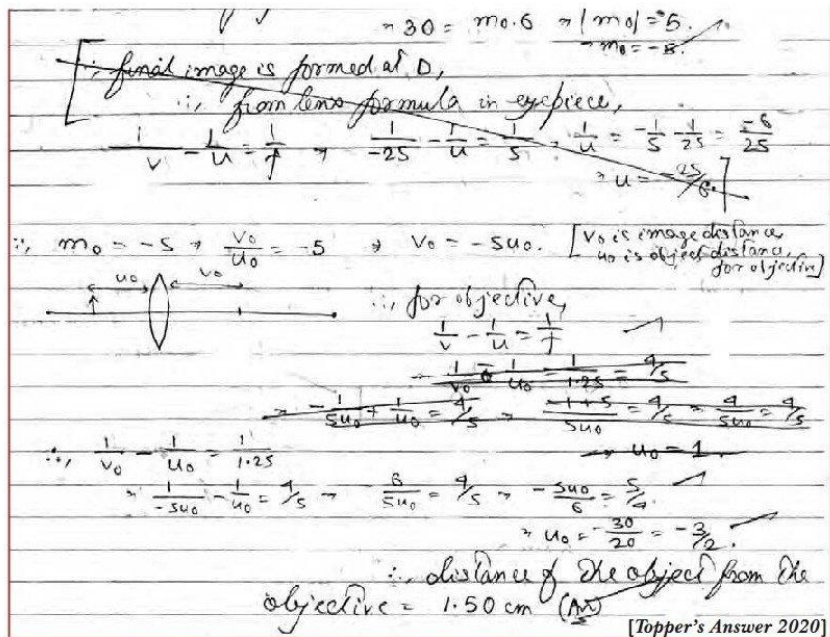 ⇒ 30 = m₀.6 ⇒ |m₀| = 5.
⇒ m₀ = -5.
∴, final image is formed at D,
∴, from lens formula in eyepiece,
1/v - 1/u = 1/f ⇒ 1/-25 - 1/u = 1/5 ⇒ 1/u = -1/5 - 1/25 = -6/25
⇒ u = -25/6.
∴, m₀ = -5 ⇒ v₀/u₀ = -5 ⇒ v₀ = -5u₀. [v₀ is image distance,
u₀ is object distance,
for objective]
u₀ v₀
∴, for objective,
1/v - 1/u = 1/f
1/v₀ 1/u₀ = 1/1.25 = 4/5
⇒ -1/5u₀ + 1/u₀ = 4/5 ⇒ -1+5/5u₀ = 4/5 ⇒ 4/5u₀ = 4/5
⇒ u₀ = 1.
∴, 1/v₀ - 1/u₀ = 1/1.25
⇒ 1/-5u₀ - 1/u₀ = 4/5 ⇒ -6/5u₀ = 4/5 ⇒ -5u₀/6 = 5/4.
⇒ u₀ = -30/20 = -3/2.
∴, distance of the object from the
objective = 1.50 cm (An)
[Topper's Answer 2020]